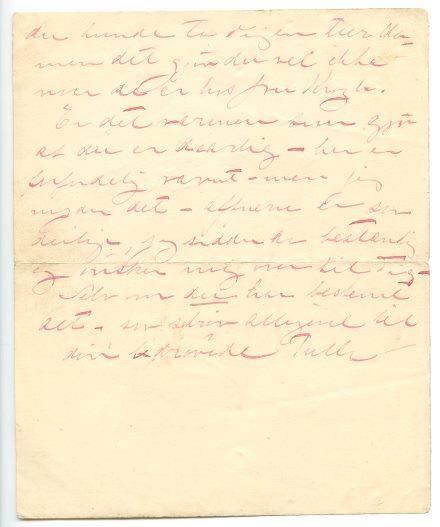 du kunde ta dig en tur da
men det gør du vel ikke
naar du er hos fru Krogh.
Er det varmen som gjør
at du er daarlig – her er
forfærdelig varmt – men jeg
nyder det – aftnene er saa
deilige, jeg sidder her bestandig
og ønsker mig over til dig –
Selv om du har bestemt
det – saa skriv alligevel til
din bedrøvede Tulla